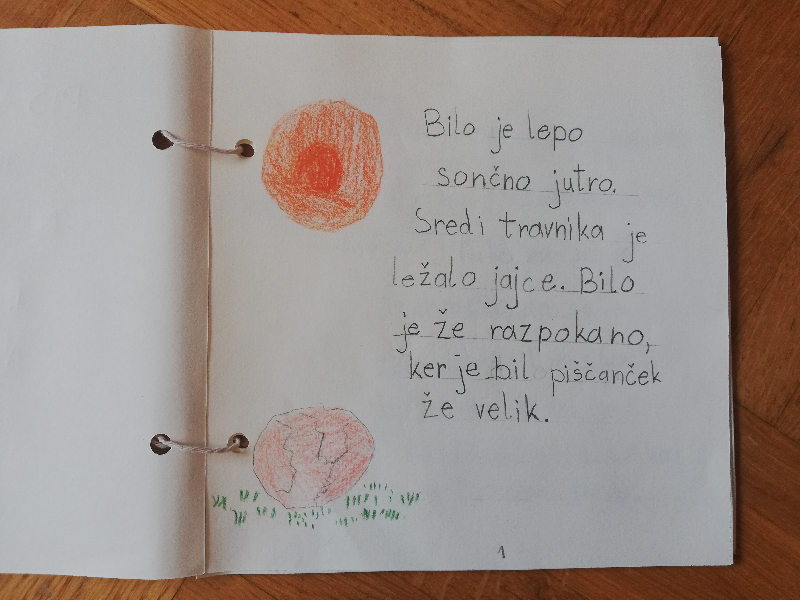 Bilo je lepo
sončno jutro.
Sredi travnika je
ležalo jajce. Bilo
je že razpokano,
ker je bil piščanček
že velik.
1